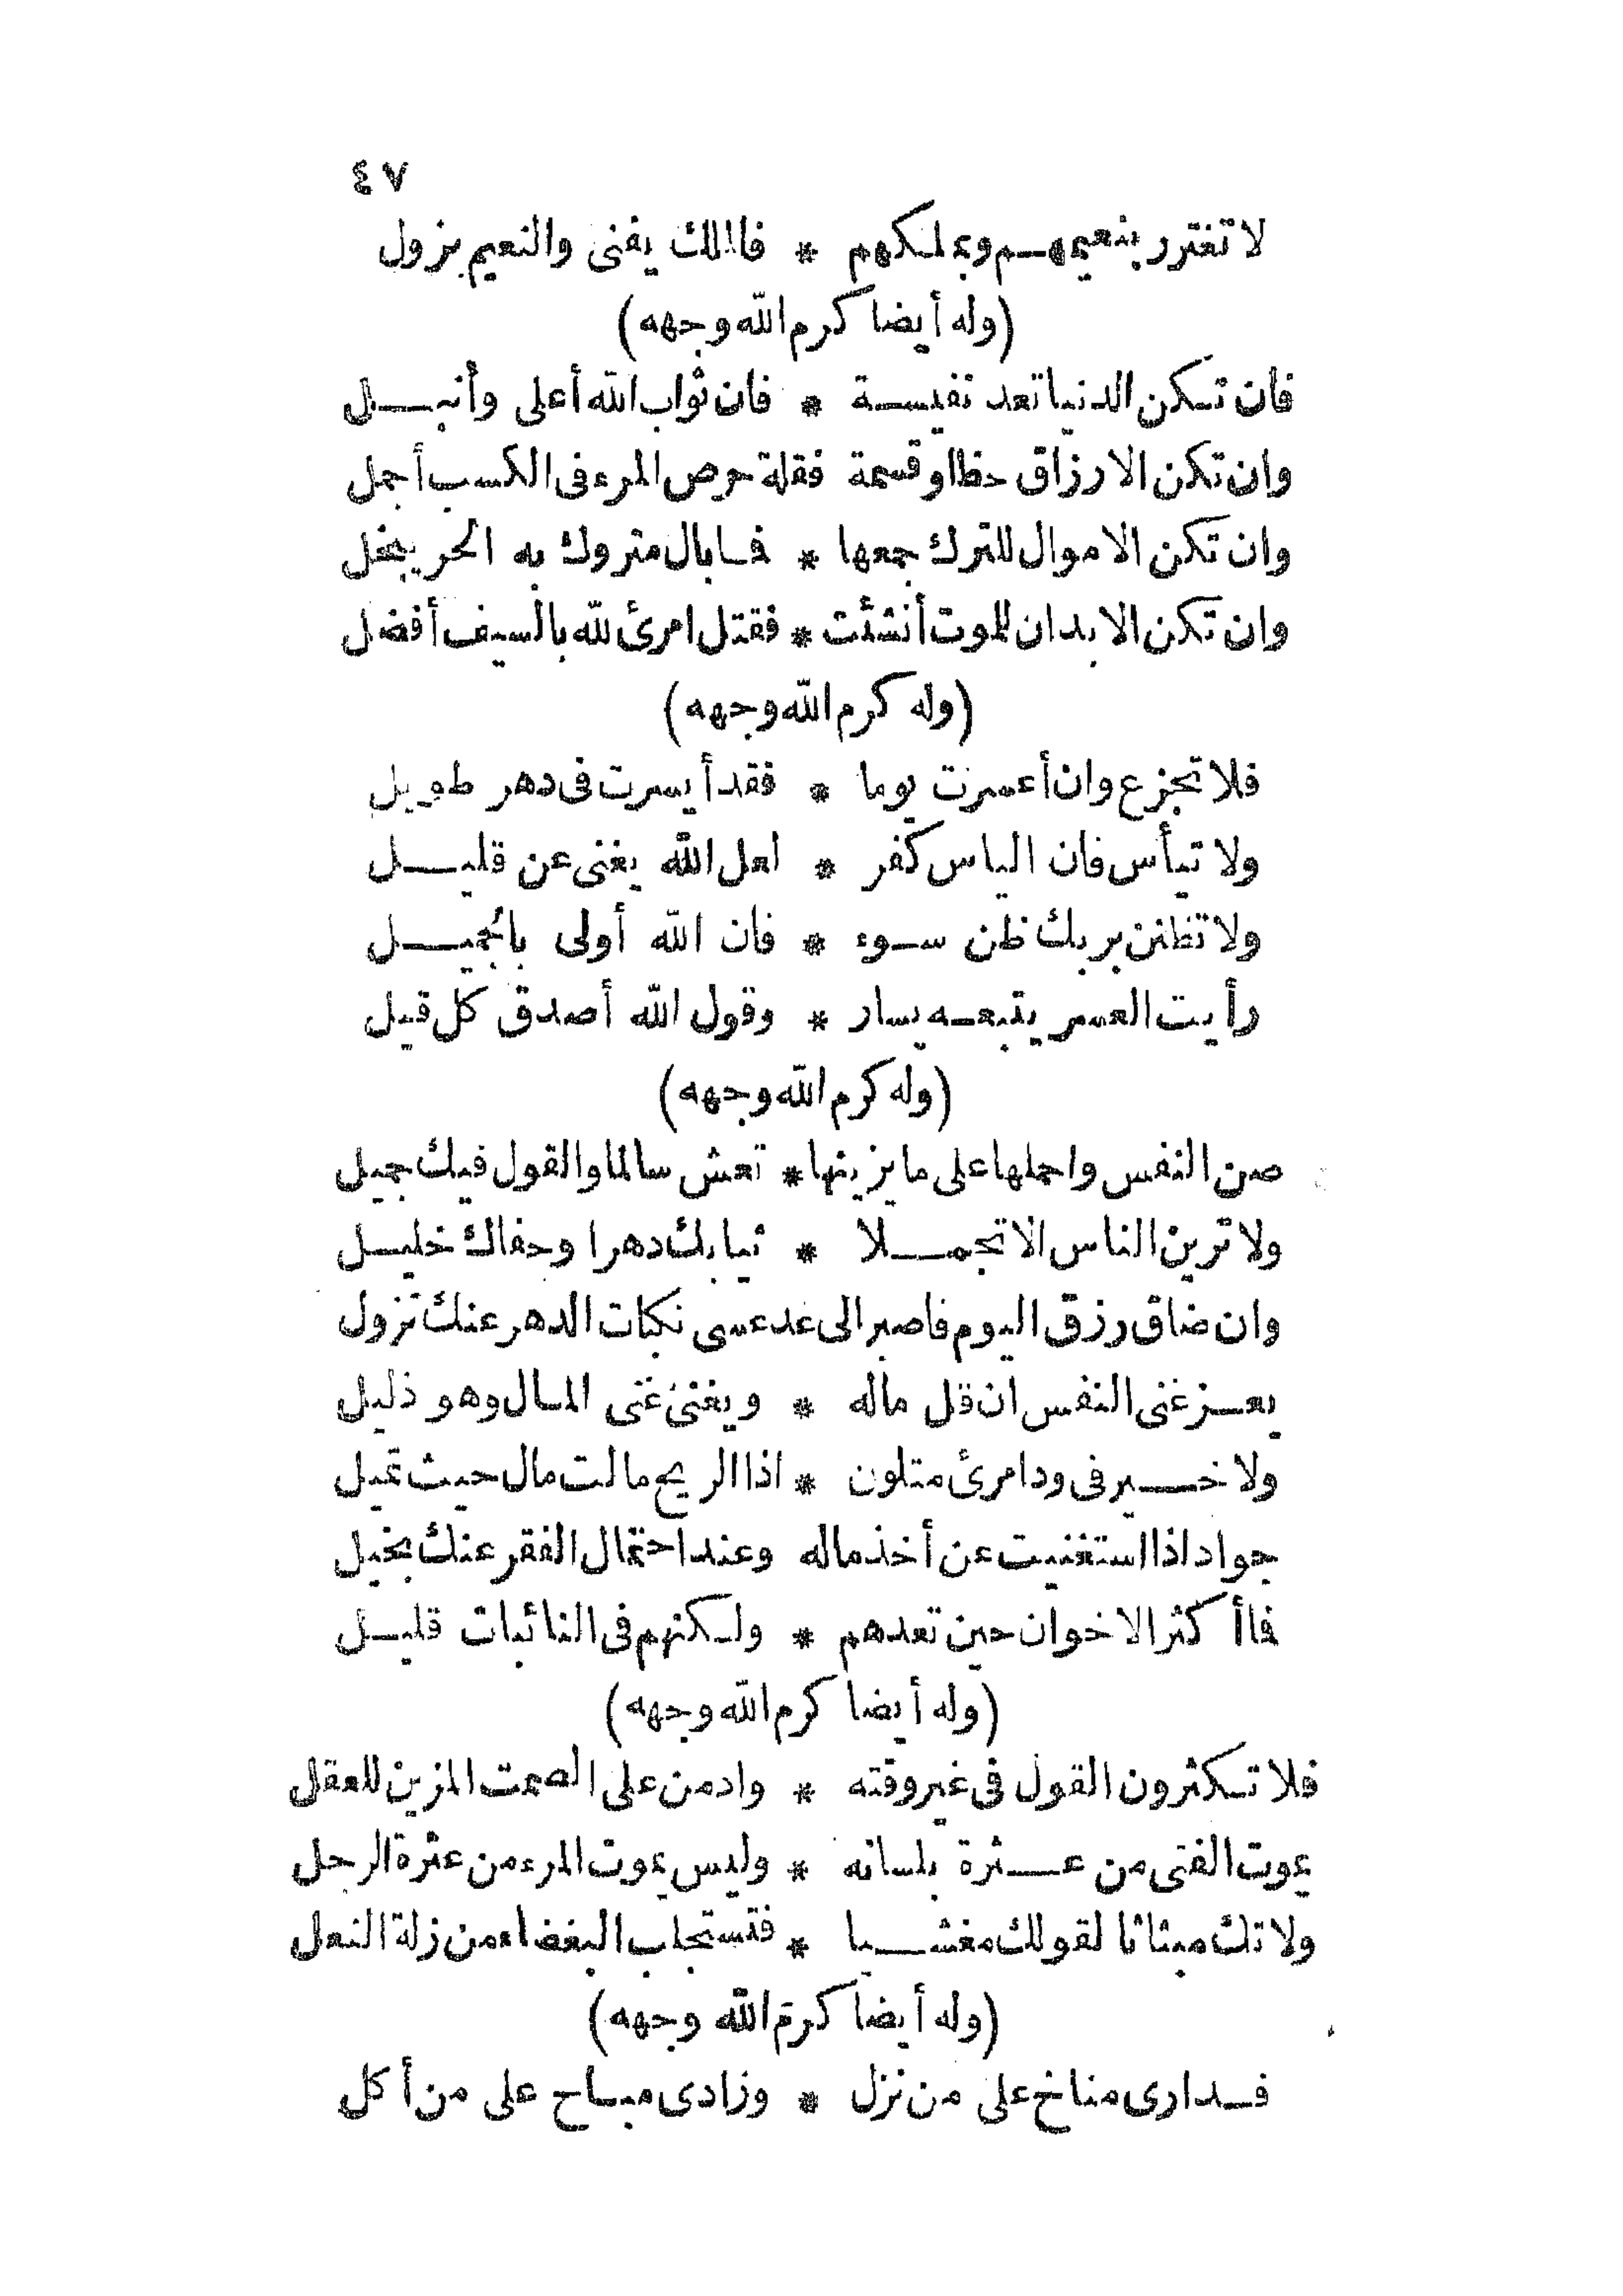 ٤٧
لا تغترر بنعيمهم وبملكهم * فالملك يفنى والنعيم يزول
(وله أيضا كرم الله وجهه)
فان تكن الدنيا تعد نفيسة * فان ثواب الله أعلى وأنبل
وان تكن الارزاق حظا وقسمة فقلة حرص المرء فى الكسب أجمل
وان تكن الاموال للترك جمعها * فما بال متروك به الحر يبخل
وان تكن الابدان للموت أنشئت * فقتل امرئ لله بالسيف أفضل
(وله كرم الله وجهه)
فلا تجزع وان أعسرت يوما * فقد أيسرت فى دهر طويل
ولا تيأس فان الياس كفر * لعل الله يغنى عن قليل
ولا تظنن بربك ظن سوء * فان الله أولى بالجميل
رأيت العسر يتبعه يسار * وقول الله أصدق كل قيل
(وله كرم الله وجهه)
صن النفس واحملها على ما يزينها * تعش سالما والقول فيك جميل
ولا ترين الناس الا تجملا * نبا بك دهر ا وجفاك خليل
وان ضاق رزق اليوم فاصبر الى غد عسى نكبات الدهر عنك تزول
يعز غنى النفس ان قل ماله * ويغنى غنى المال وهو ذليل
ولا خير فى ود امرئ متلون * اذا الريح مالت مال حيث تميل
جواد اذا استغنيت عن أخذ ماله وعند احتمال الفقر عنك بخيل
فما أكثر الاخوان حين تعدهم * ولكنهم فى النائبات قليل
(وله أيضا كرم الله وجهه)
فلا تكثرون القول فى غير وقته * وادمن على الصمت المزين للعقل
يموت الفتى من عثرة بلسانه * وليس يموت المرء من عثرة الرجل
ولا تك مبثاثا لقولك مفشيا * فتستجلب البغضاء من زلة النعل
(وله أيضا كرم الله وجهه)
فدارى مناخ على من نزل * وزادى مباح على من أكل